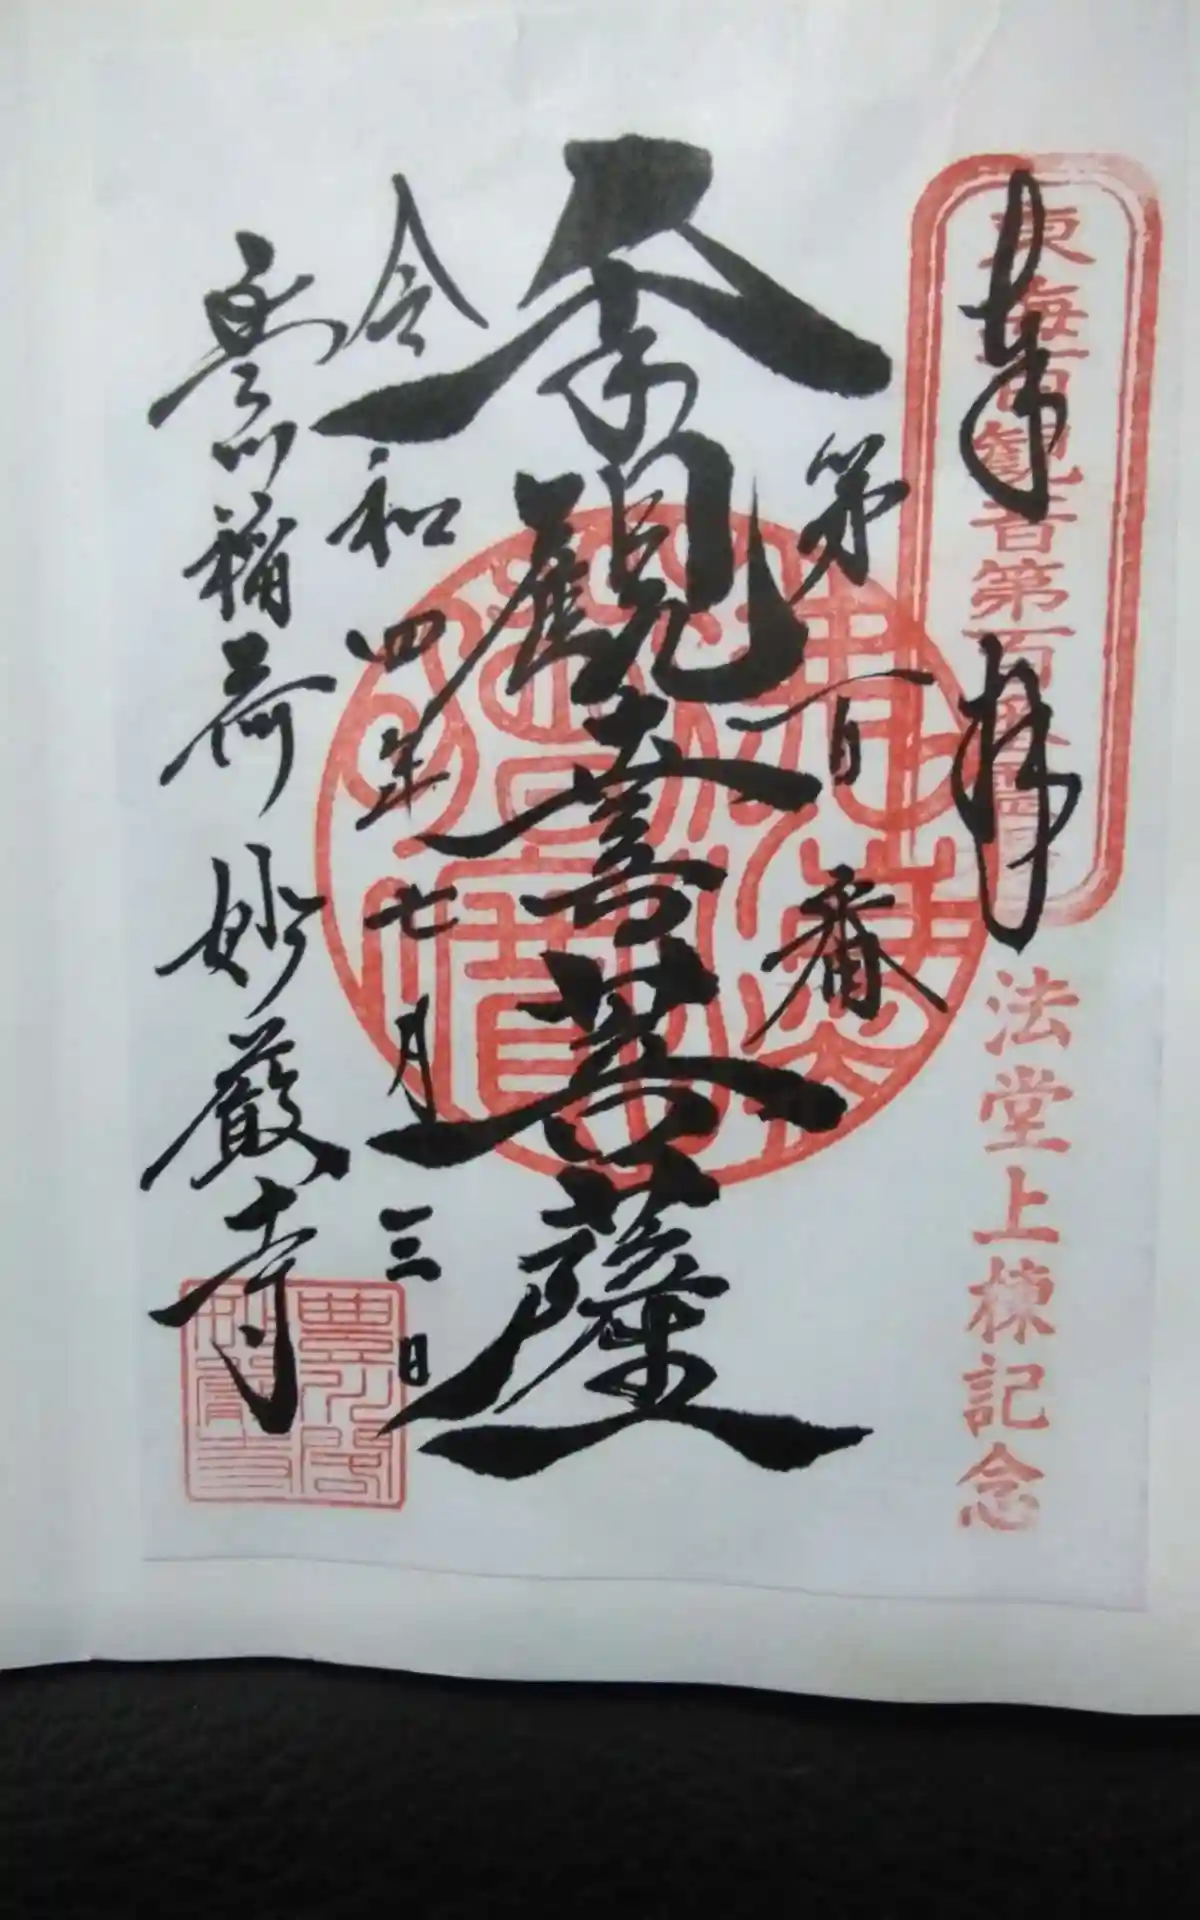 奉拝
東海百観音第百番霊場
法堂上棟記念
第百番
千手観世音菩薩
令和四年七月三日
豊川稲荷 妙厳寺